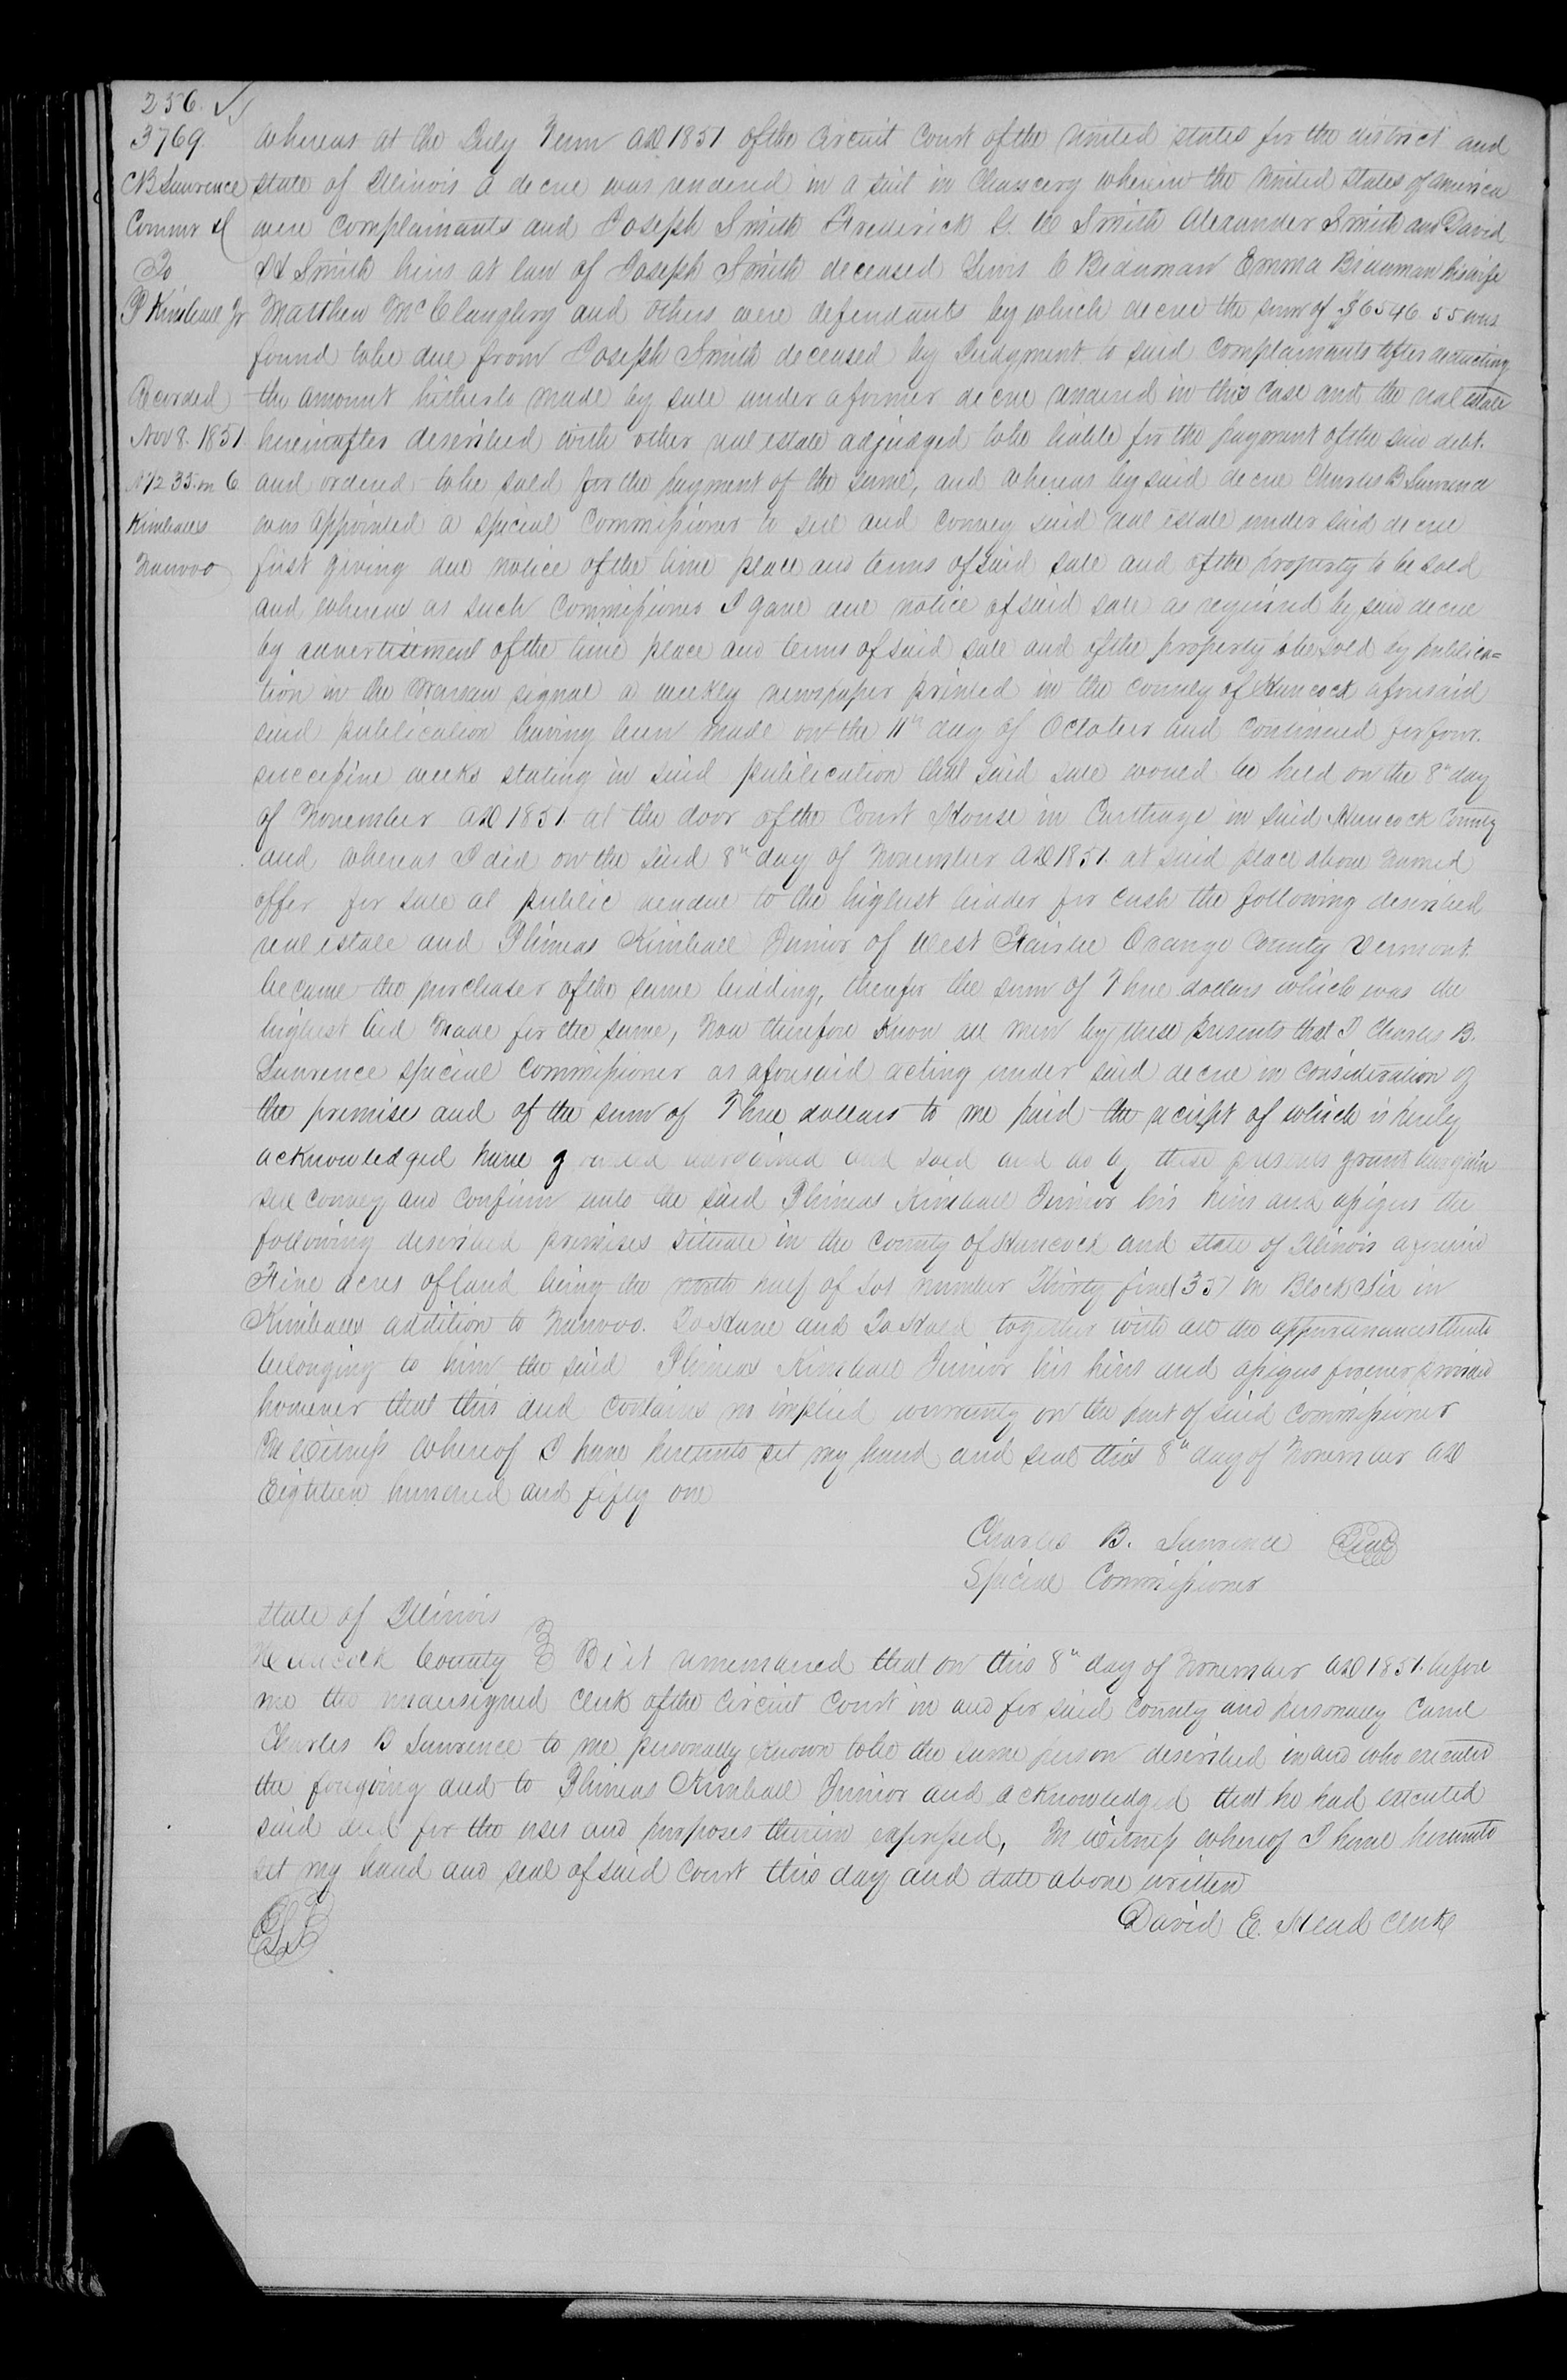 256.
3769.
C B Lawrence
Commr
To
P Kimball Jr
Recorded
Nov 8. 1851
N 1/2 35. in 6
Kimballs
Nauvoo
Whereas at the July Term AD 1851 of the Circuit Court of the United States for the district and
state of Illinois a decree was rendered in a suit in Chancery wherein the United States of America
were complainants and Joseph Smith Frederick G. W Smith Alexander Smith and David
H Smith heirs at law of Joseph Smith deceased Lewis C Bidamon Emma Bidamon his wife
Matthew McClaughry and others were defendants by which decree the sum of $6546 55 was
found to be due from Joseph Smith deceased by Judgment to said complainants after deducting
the amount hitherto made by sale under a former decree rendered in this case and the real estate
hereinafter described with other real estate adjudged to be liable for the payment of the said debt.
and ordered to be sold for the payment of the same, and whereas by said decree Charles B Lawrence
was appointed a special Commissioner to sell and convey said real estate under said decree
first giving due notice of the time place and terms of said sale and of the property to be sold
and whereas as such Commissioner I gave due notice of said sale as required by said decree
by advertisement of the time place and terms of said sale and of the property to be sold by publica=
tion in the Warsaw signal a weekly newspaper printed in the county of Hancock aforesaid
said publication having been made on the 11th day of October and continued for four
successive weeks stating in said publication that said sale would be held on the 8th day
of November AD 1851. at the door of the Court House in Carthage in said Hancock County
and whereas I did on the said 8th day of November AD 1851. at said place above named
offer for sale at public vendue to the highest bidder for cash the following described
real estate and Phineas Kimball Junior of West Fairlee Orange County Vermont.
became the purchaser of the same bidding, therefor the sum of Three dollars which was the
highest bid made for the same, Now therefore Know all men by these presents that I Charles B.
Lawrence special commissioner as aforesaid acting under said decree in consideration of
the premises and of the sum of Three dollars to me paid the receipt of which is hereby
acknowledged have granted bargained and sold and do by these presents grant bargain
sell convey and confirm unto the said Phineas Kimball Junior his heirs and assigns the
following described premises situate in the county of Hancock and state of Illinois aforesaid
Five acres of land being the north half of Lot number Thirty five (35) in Block Six in
Kimballs addition to Nauvoo. To Have and To Hold together with all the appurtenances thereto
belonging to him the said Phineas Kimball Junior his heirs and assigns forever provided
however that this deed contains no implied warranty on the part of said commissioner
In Witness Whereof I have hereunto set my hand and seal this 8th day of November AD
Eighteen hundred and fifty one
Charles B. Lawrence Seal
Special Commissioner
State of Illinois
Hancock County Be it remembered that on this 8th day of November AD 1851. before
me the undersigned Clerk of the Circuit Court in and for said county and personally came
Charles B Lawrence to me personally known to be the same person described in and who executed
the foregoing deed to Phineas Kimball Junior and acknowledged that he had executed
said deed for the uses and purposes therein expressed, In Witness whereof I have hereunto
set my hand and seal of said Court this day and date above written
LS David E. Head Clerk